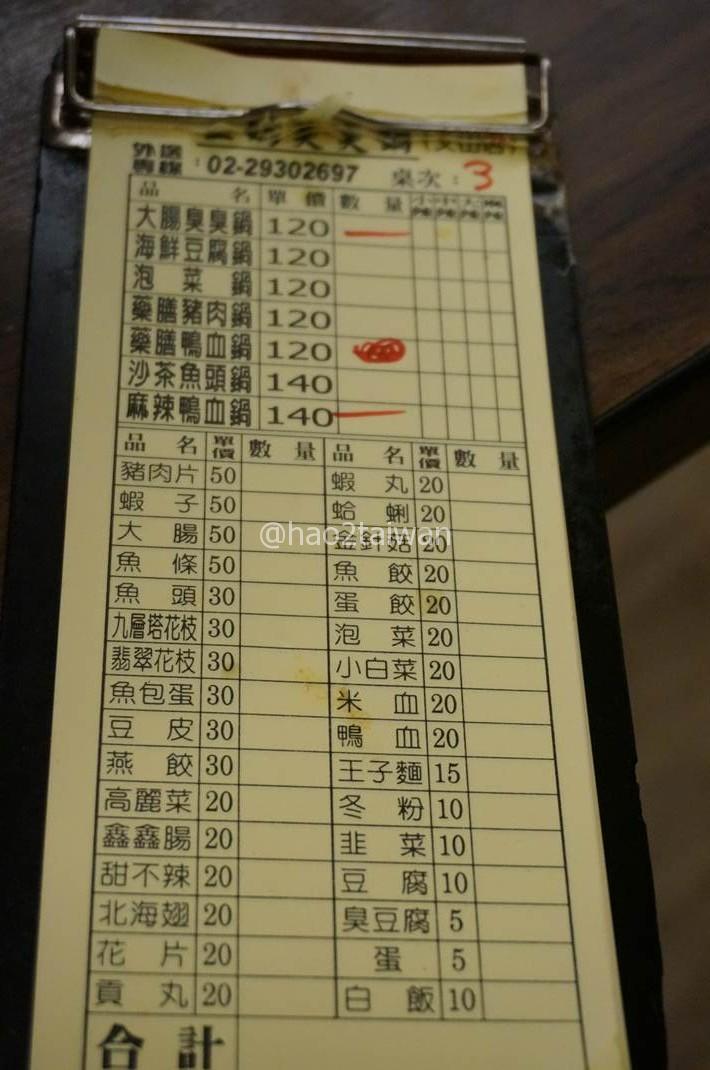 外送專線：02-29302697 桌次：3
品名 單價 數量
大腸臭臭鍋 120
海鮮豆腐鍋 120
泡菜鍋 120
藥膳豬肉鍋 120
藥膳鴨血鍋 120
沙茶魚頭鍋 140
麻辣鴨血鍋 140
品名 單價 數量 品名 單價 數量
豬肉片 50 蝦丸 20
蝦子 50 蛤蜊 20
@hao2taiwan
大腸 50 金針菇 20
魚條 50 魚餃 20
魚頭 30 蛋餃 20
九層塔花枝 30 泡菜 20
翡翠花枝 30 小白菜 20
魚包蛋 30 米血 20
豆皮 30 鴨血 20
燕餃 30 王子麵 15
高麗菜 20 冬粉 10
鑫鑫腸 20 韭菜 10
甜不辣 20 豆腐 10
北海翅 20 臭豆腐 5
花片 20 蛋 5
貢丸 20 白飯 10
合計